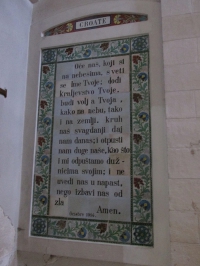 CROATE
Oče naš, koji si
na nebesima, sveti
se ime Tvoje; dođi
kraljevstvo Tvoje,
budi volja Tvoja,
kako na nebu, tako
i na zemlji, kruh
naš svagdanji daj
nam danas; i otpusti
nam duge naše, kao što
i mi odpuštamo duž-
nicima svojim; i ne
uvedi nas u napast,
nego izbavi nas od
zla
Amen.